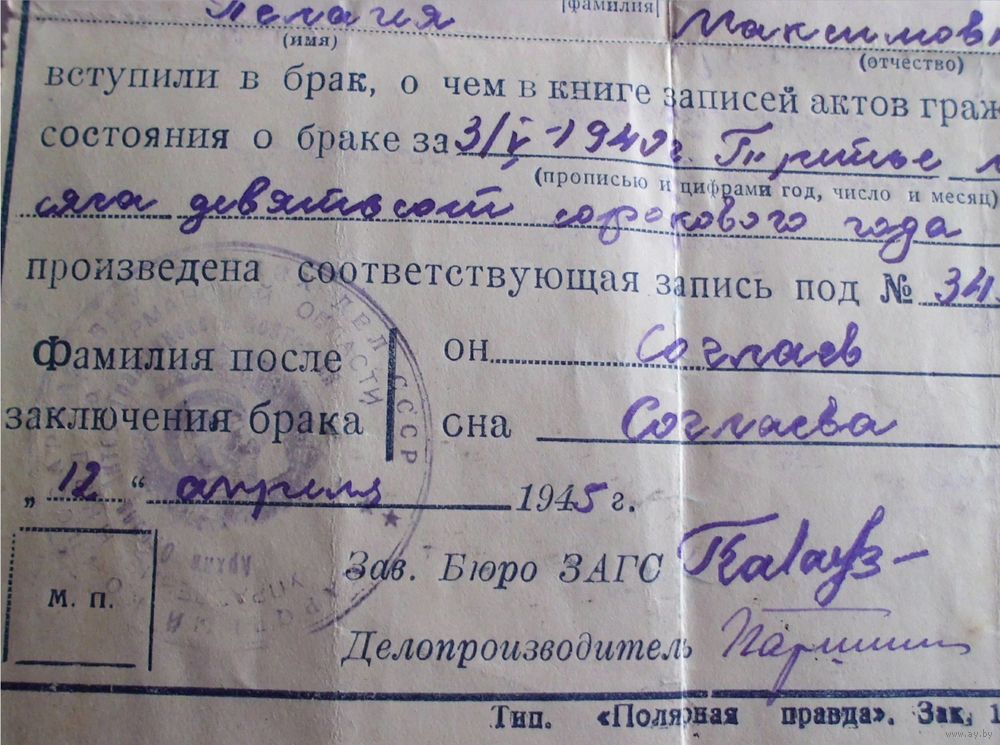 Пелагия [фамилия] Максимовн
(имя) (отчество)
вступили в брак, о чем в книге записей актов граж
состояния о браке за 3/V-1940г. Третье м
(прописью и цифрами год, число и месяц)
сяца девятьсот сорокового года
произведена соответствующая запись под № 34
Фамилия после
заключения брака
он Согласов
сна Согласова
„12“ апреля 1945 г.
Зав. Бюро ЗАГС
М. П.
Делопроизводитель
Тип. «Полярная правда». Зак. 1
ОТДЕЛ
ОБЛАСТИ
СССР
www.ay.by